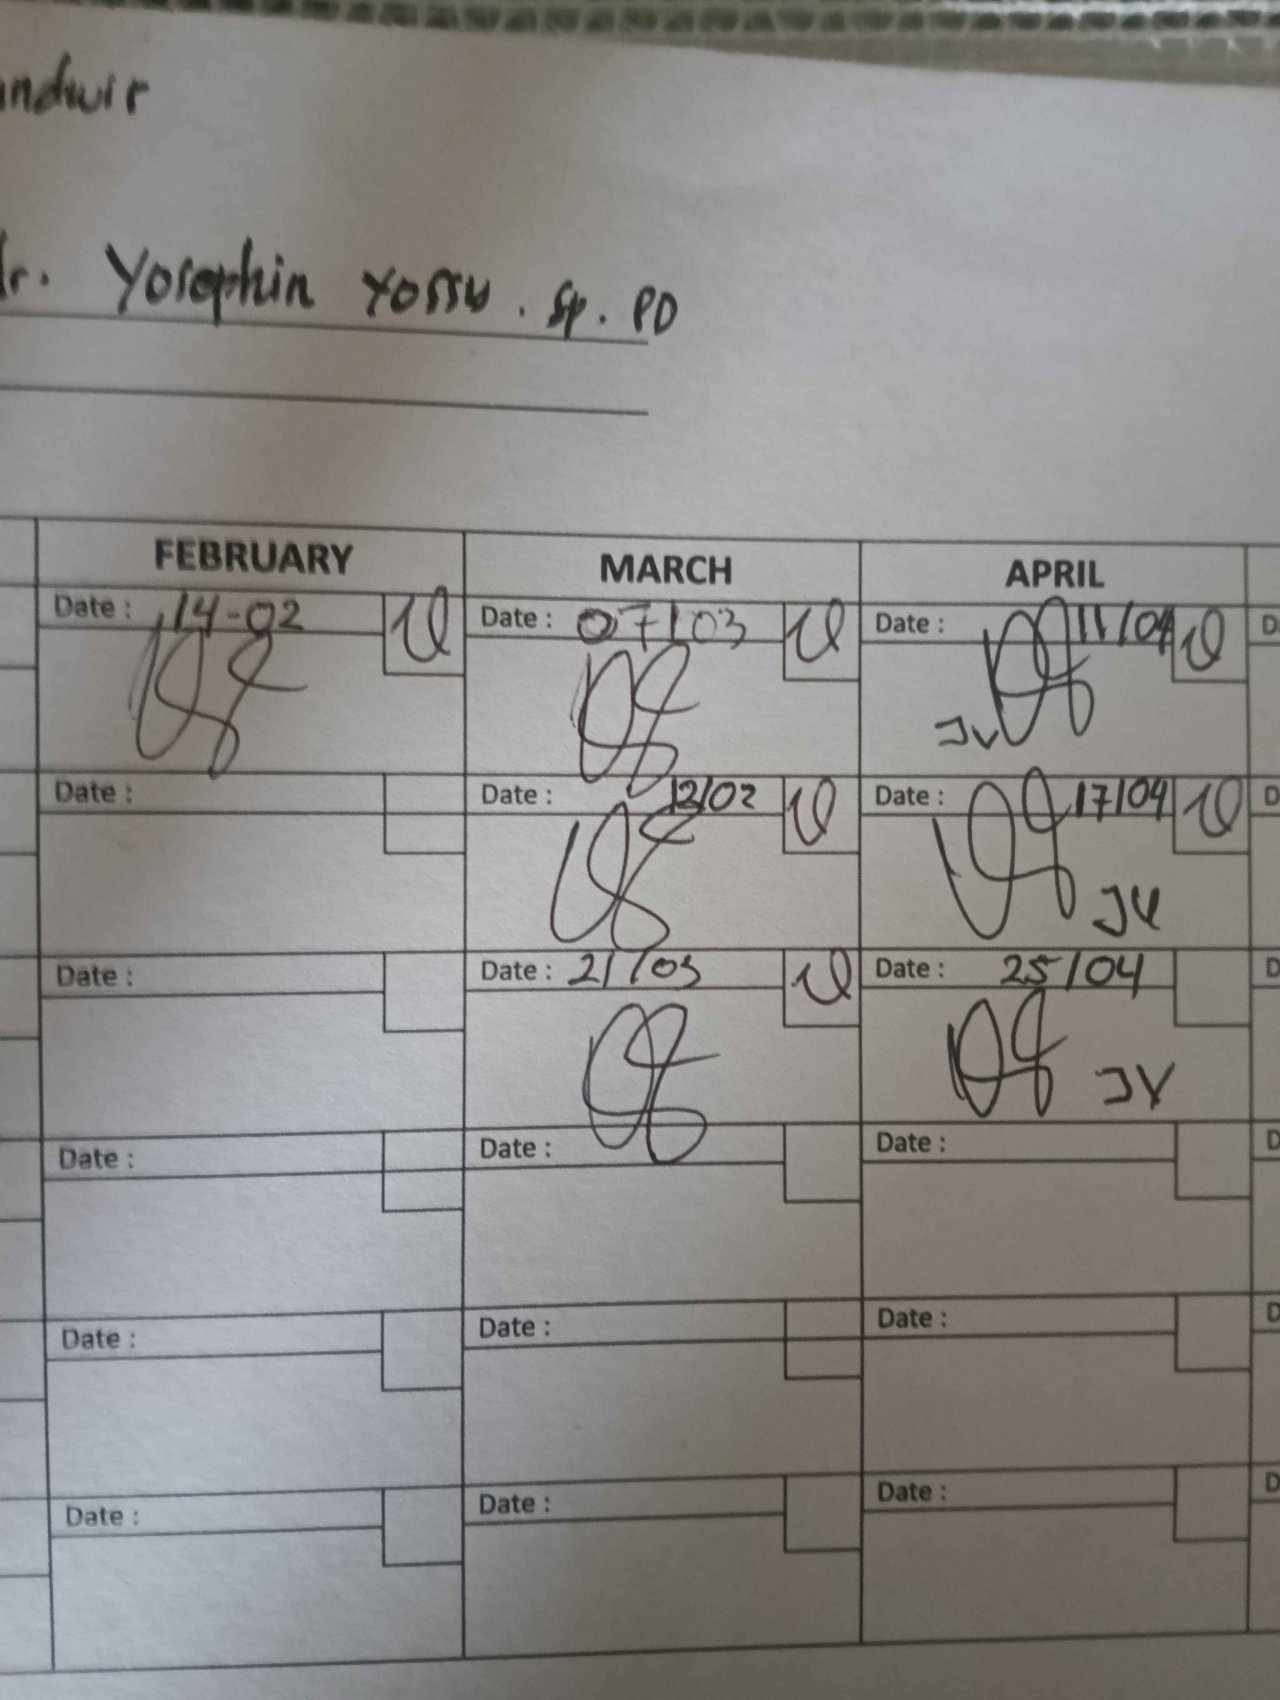 dr. Yosephin Yossy . Sp. PD
FEBRUARY MARCH APRIL
Date : 14-02 Date : 07/03 Date : 11/04 D
JV
Date : Date : 12/02 Date : 17/04 D
JV
Date : Date : 21/03 Date : 25/04 D
JV
Date : Date : Date : D
Date : Date : Date : D
Date : Date : Date : D